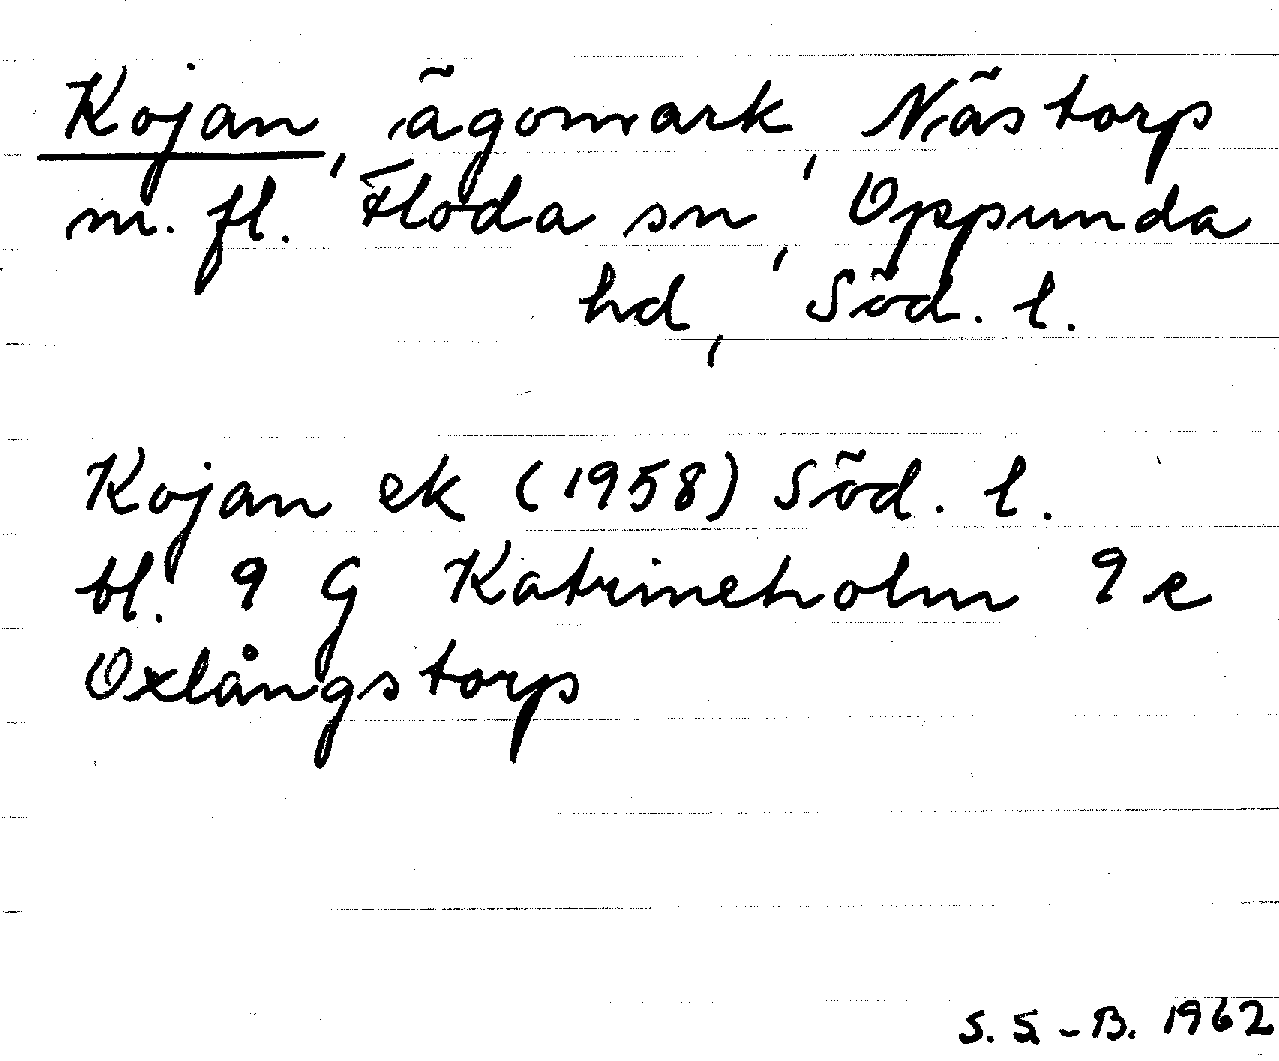 Kojan, ägomark, Nästorp
m. fl. Floda sn, Oppunda
hd, Söd. l.
Kojan ek (1958) Söd. l.
bl. 9 G Katrineholm 9 e
Oxlångstorp
S. S. - B. 1962